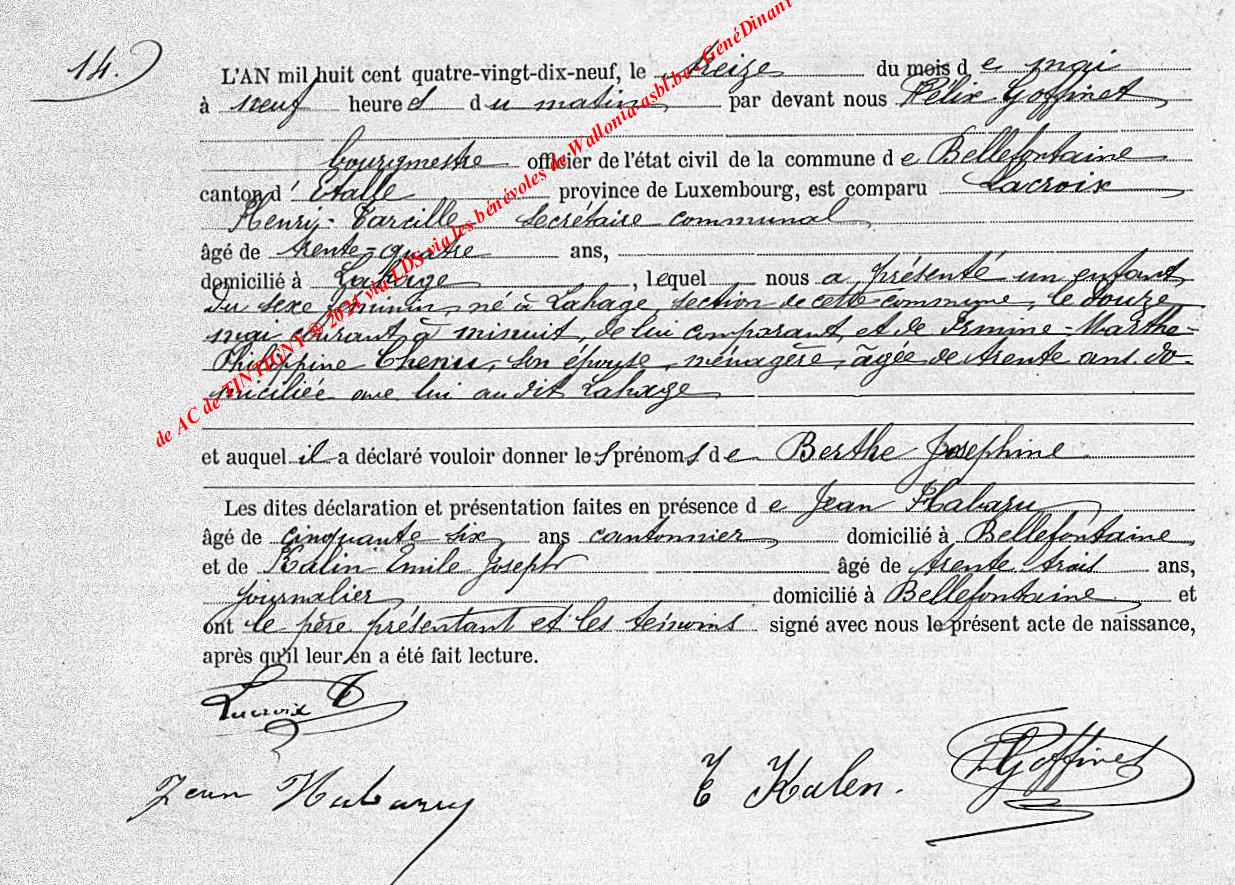 14.
L'AN mil huit cent quatre-vingt-dix-neuf, le treize du mois de mai
à neuf heures du matin par devant nous Félix Goffinet
bourgmestre officier de l'état civil de la commune de Bellefontaine
canton d'Etalle province de Luxembourg, est comparu Lacroix
Henry-Tarcille secrétaire communal
âgé de trente-quatre ans,
domicilié à Lahage, lequel nous a présenté un enfant
du sexe féminin, né à Lahage, section de cette commune, le douze
mai courant à minuit, de lui comparant, et de Irmine-Marthe-
Philippine Chenu, son épouse, ménagère, âgée de trente ans do-
miciliée avec lui audit Lahage
et auquel il a déclaré vouloir donner les prénoms de Berthe Josephine
Les dites déclaration et présentation faites en présence de Jean Habaru
âgé de cinquante six ans cantonnier domicilié à Bellefontaine
et de Kalin Emile Joseph âgé de trente trois ans,
journalier domicilié à Bellefontaine et
ont le père présentant et les témoins signé avec nous le présent acte de naissance,
après qu'il leur en a été fait lecture.
Lacroix T
Jean Habaru
E Kalen.
Goffinet
de AC de TINTIGNY © 2024 via LDS via les bénévoles de Wallonia-asbl.be - GénéDinant